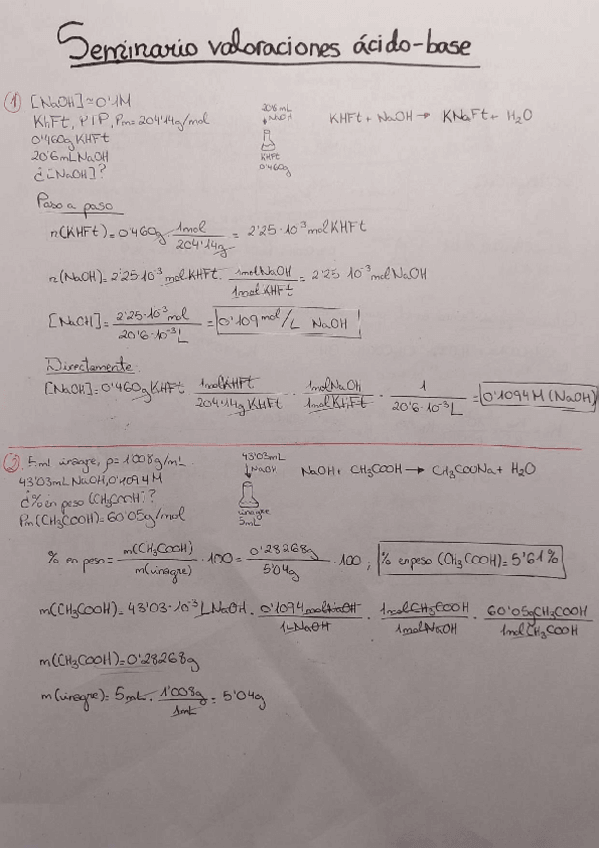 Seminario valoraciones ácido-base
① [NaOH] ≃ 0'1M
KHFt, PIP, Pm = 204'14g/mol
0'460g KHFt
20'6 mL NaOH
¿[NaOH]?
20'6 mL
NaOH
KHFt
0'460g
KHFt + NaOH → KNaFt + H₂O
Paso a paso
n(KHFt) = 0'460g · 1mol / 204'14g = 2'25·10⁻³ mol KHFt
n(NaOH) = 2'25·10⁻³ mol KHFt · 1mol NaOH / 1mol KHFt = 2'25·10⁻³ mol NaOH
[NaOH] = 2'25·10⁻³ mol / 20'6·10⁻³ L = 0'109 mol/L NaOH
Directamente
[NaOH] = 0'460g KHFt · 1mol KHFt / 204'14g KHFt · 1mol NaOH / 1mol KHFt · 1 / 20'6·10⁻³ L = 0'1094 M (NaOH)
② 5ml vinagre, ρ = 1'008g/mL
43'03mL NaOH, 0'1094 M
¿% en peso (CH₃COOH)?
Pm(CH₃COOH) = 60'05g/mol
43'03mL
NaOH
vinagre
5mL
NaOH + CH₃COOH → CH₃COONa + H₂O
% en peso = m(CH₃COOH) / m(vinagre) · 100 = 0'28268g / 5'04g · 100 ; % en peso (CH₃COOH) = 5'61%
m(CH₃COOH) = 43'03·10⁻³ L NaOH · 0'1094 mol NaOH / 1L NaOH · 1mol CH₃COOH / 1mol NaOH · 60'05g CH₃COOH / 1mol CH₃COOH
m(CH₃COOH) = 0'28268g
m(vinagre) = 5mL · 1'008g / 1mL = 5'04g